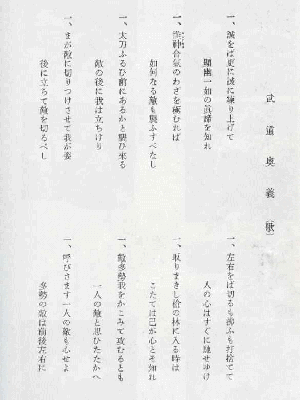 武道奥義
一、誠をば更に誠に練り上げて
顕幽一如の眞諦を知れ
一、惟神合氣のわざを極むれば
如何なる敵も襲ふすべなし
一、太刀ふるひ前にあるかと襲ひ来る
敵の後に我は立ちけり
一、まが敵に切りつけさせて我が姿
後に立ちて敵を切るべし
一、左右をば切るも拂ふも打捨てて
人の心はすぐに馳せゆけ
一、取りまきし槍の林に入る時は
こたては己が心とぞ知れ
一、敵多勢我をかこみて攻むるとも
一人の敵と思ひたたかへ
一、呼びさます一人の敵も心せよ
多勢の敵は前後左右に